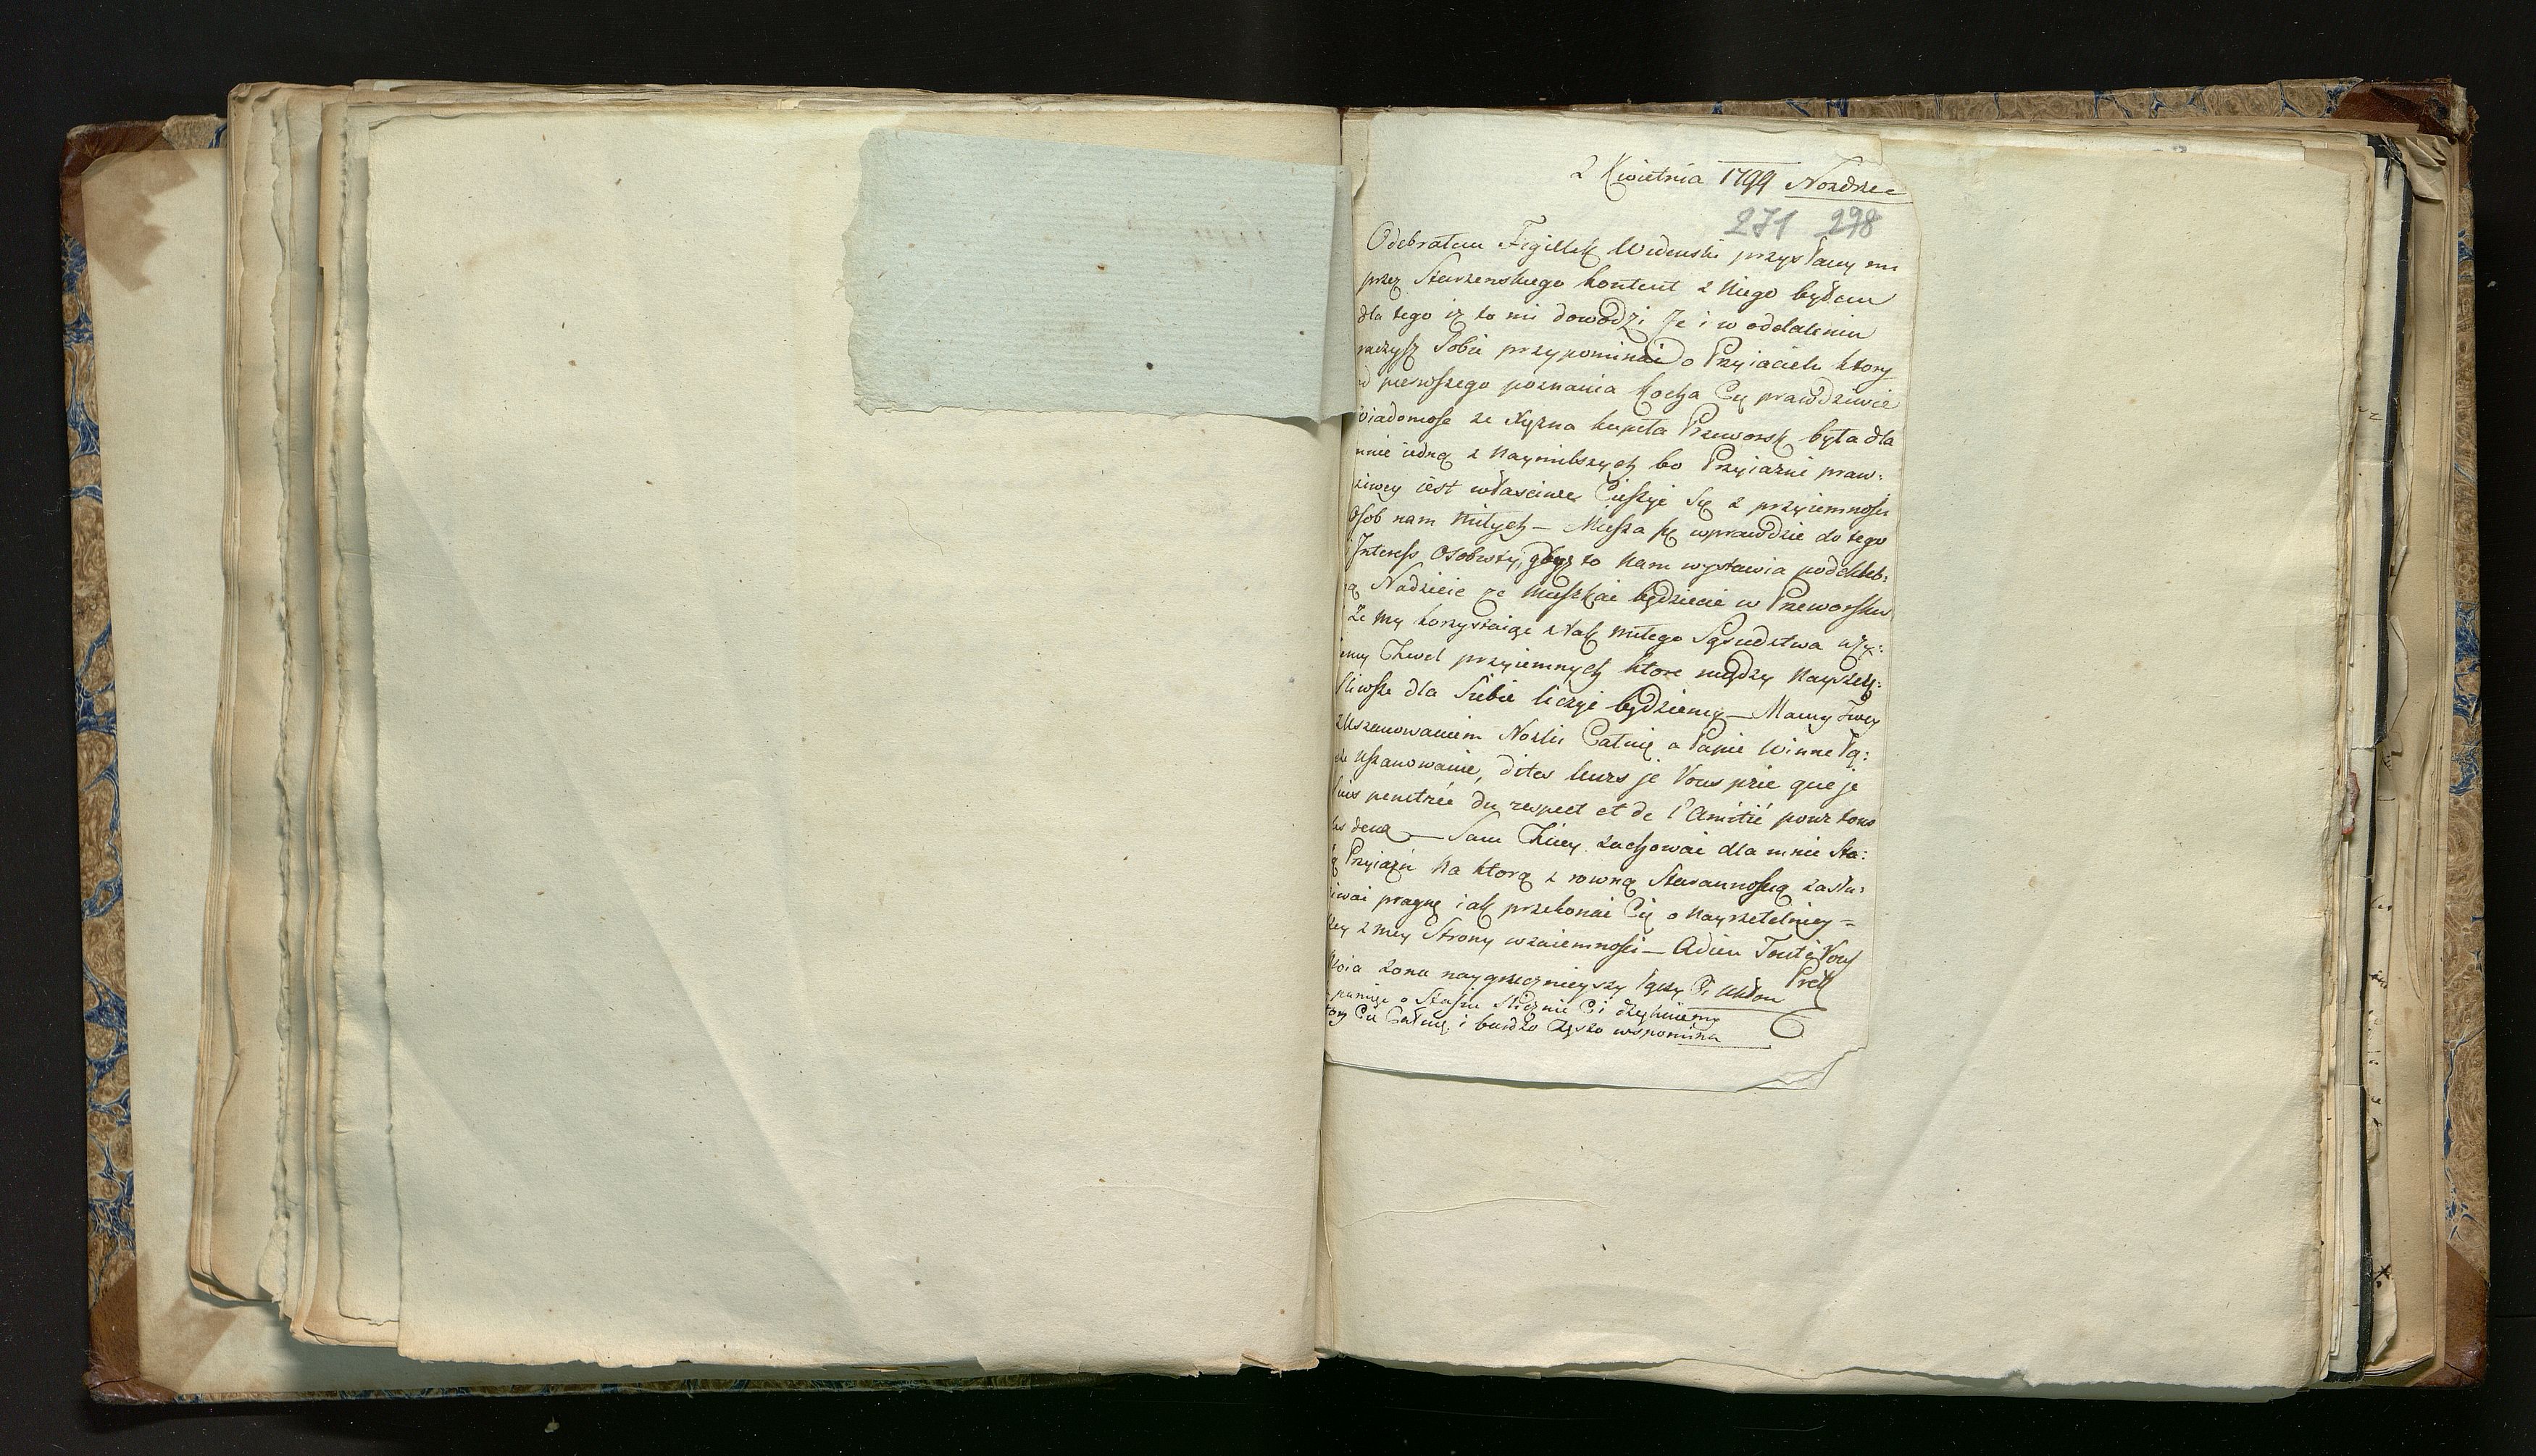 2 Kwietnia 1799 Nozdrzec
271 298
Odebrałem Figielek Widenski przysłany mi
przez Starzenskiego kontent z Niego byłem
dla tego iz to mi dowodzi Ze i w oddaleniu
raczysz Sobie przypominać o Przyiacielu ktory
od pierwszego poznania kocha Cię prawdziwie
wiadomosc ze Xyzna kupiła Przeworsk była dla
mnie iedną z Naymilszych bo Przyiazni praw:
ziwey iest właściwe Cieszyć Się z przyiemności
Osob nam Miłych — Miesza się wprawdzie do tego
Interess Osobisty, gdyz to Nam wystawia podchleb:
ną Nadzieie ze Mieszkać będziecie w Przeworsku
Ze My korzystaiąc z tak miłego Sąsiedztwa uzy:
iemy Chwil przyiemnych ktore między Nayszczę:
śliwsze dla Siebie liczyć będziemy — Mamy Twey
z Uszanowaniem Nozki Całuię a Papie Winne Łą:
uszanowanie, dites leurs je Vous prie que je
suis penetrée du respect et de l'Amitié pour tous
les deux — Sam Chciey zachować dla mnie Sta:
łą Przyiazń Na ktorą z rowną Starannością zasłu:
iwać pragnę iak przekonać Cię o Nayrzetelniey =
szey z mey Strony wzaiemności — Adieu Tout à Vous
Moia zona naygrzeczniejszy Łączy Ci Ukłon
pamięc o Stasiu slicznie Ci dziękuiemy
ktory Cię Całuie i bardzo często wspomina